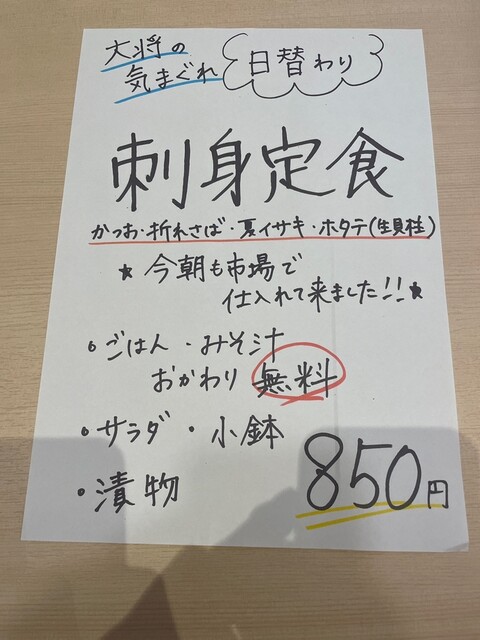 大将の
気まぐれ
日替わり
刺身定食
かつお・折れさば・夏イサキ・ホタテ(生貝柱)
★今朝も市場で
仕入れて来ました!!★
・ごはん・みそ汁
おかわり無料
・サラダ・小鉢
・漬物
850円